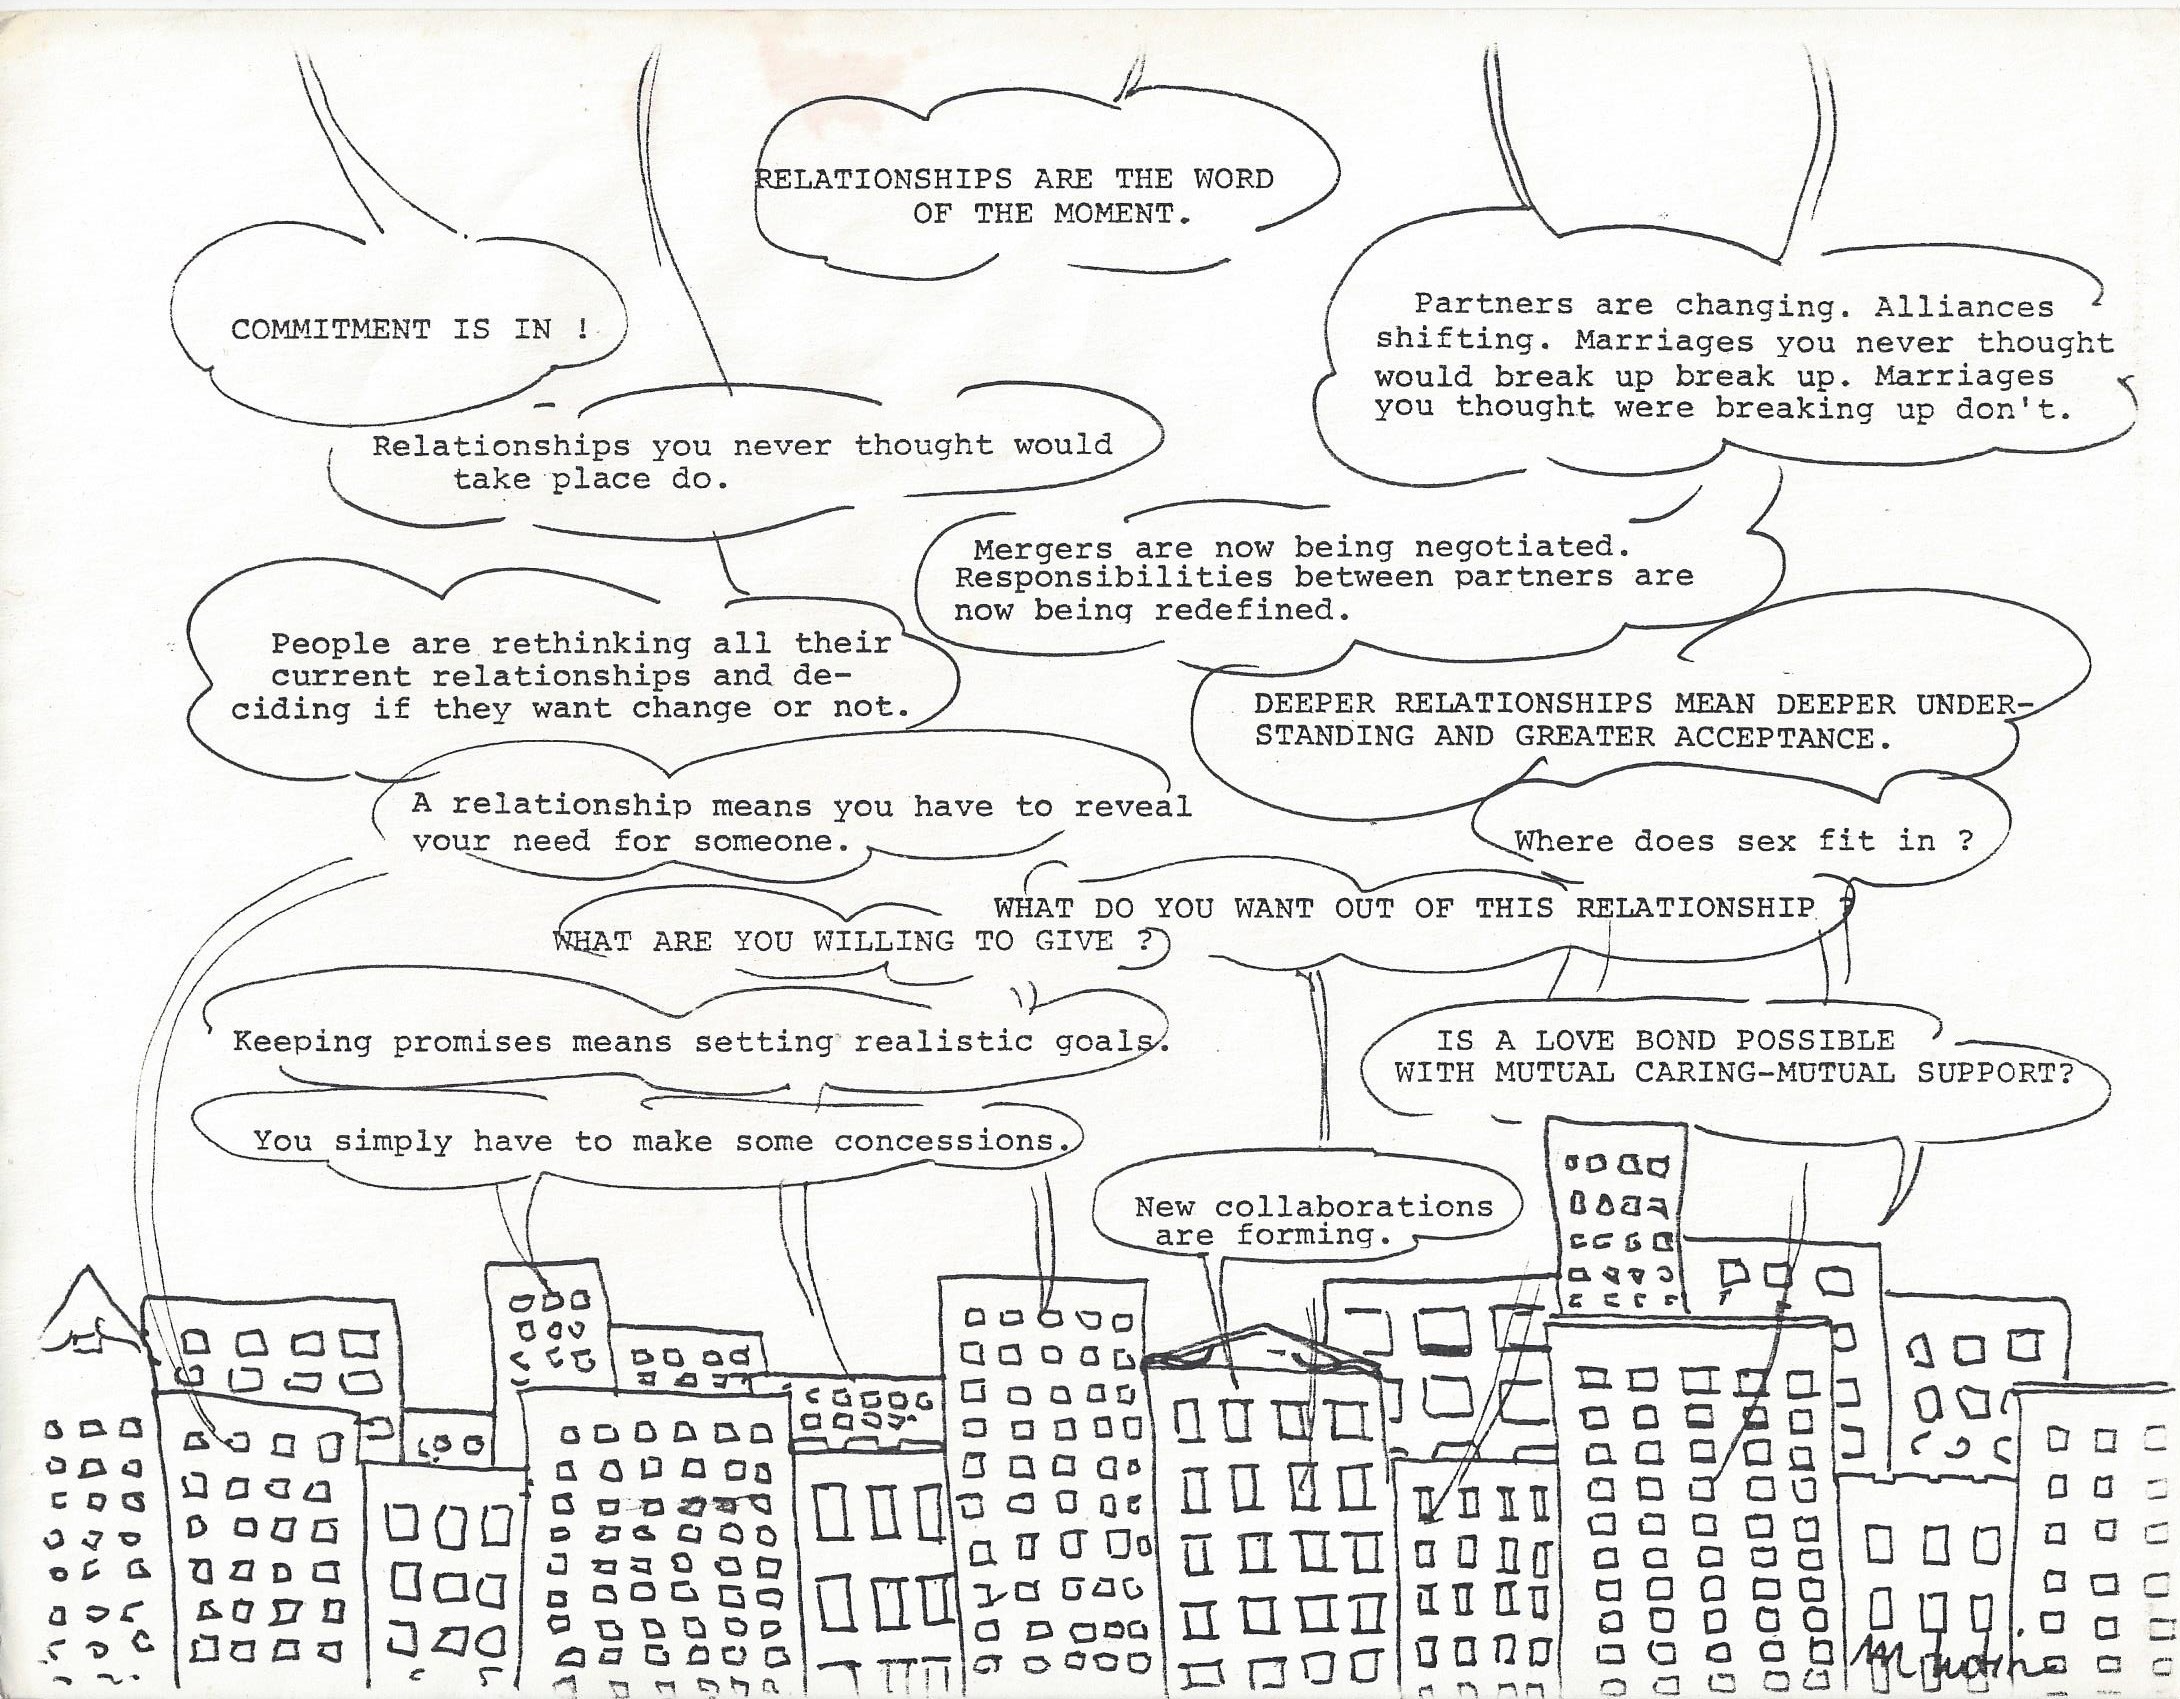 RELATIONSHIPS ARE THE WORD
OF THE MOMENT.
COMMITMENT IS IN !
Partners are changing. Alliances
shifting. Marriages you never thought
would break up break up. Marriages
you thought were breaking up don't.
Relationships you never thought would
take place do.
Mergers are now being negotiated.
Responsibilities between partners are
now being redefined.
People are rethinking all their
current relationships and de-
ciding if they want change or not.
DEEPER RELATIONSHIPS MEAN DEEPER UNDER-
STANDING AND GREATER ACCEPTANCE.
A relationship means you have to reveal
your need for someone.
Where does sex fit in ?
WHAT DO YOU WANT OUT OF THIS RELATIONSHIP ?
WHAT ARE YOU WILLING TO GIVE ?
Keeping promises means setting realistic goals.
IS A LOVE BOND POSSIBLE
WITH MUTUAL CARING-MUTUAL SUPPORT?
You simply have to make some concessions.
New collaborations
are forming.